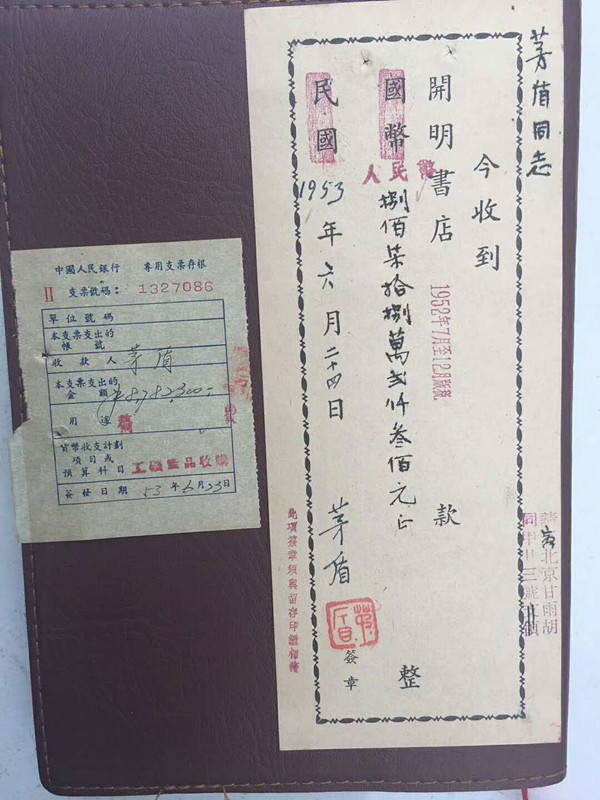 茅盾同志
今收到
開明書店
1952年7月至12月版税
款
國幣
人民幣
捌佰柒拾捌萬貳仟叁佰元正
整
民國
1953年六月二十四日
茅盾
簽章
此項簽章須與留存印鑑相符
寄北京甘雨胡
同甲廿三號
中國人民銀行 專用支票存根
II 支票號碼: 1327086
單位號碼
本支票支出的
帳號
收款人 茅盾
本支票支出的
金額 ¥8,782,300.
用途
貨幣收支計劃
項目或
預算科目
工礦產品收購
簽發日期 53年6月23日